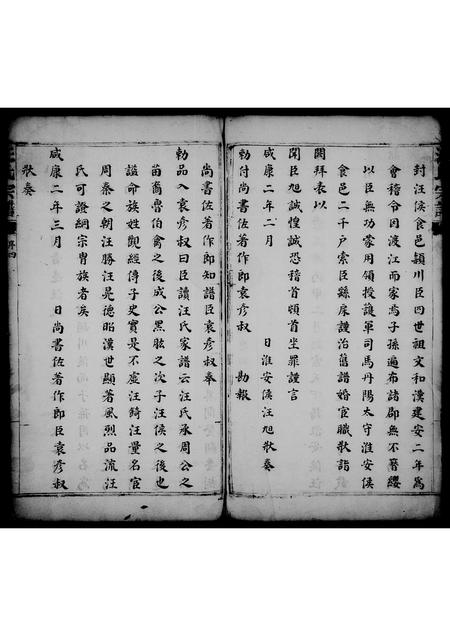 封汪侯食邑潁川臣四世祖文和漢建安二年為
會稽令因渡江而家焉子孫遍布諸郡無不簪纓
以臣無功蒙用領授護軍司馬丹陽太守淮安侯
食邑二千戶索臣縣牒謹治舊譜婚官職狀詣
闕拜表以
聞臣旭誠惶誠恐稽首頓首坐罪謹言
咸康二年二月 日淮安侯汪旭狀奏
勅付尚書佐著作郎袁彥叔 勘報
尚書佐著作郎知譜臣袁彥叔奉
勅品入袁彥叔曰臣讀汪氏家譜云汪氏承周公之
苗裔魯伯禽之後成公黑肱之次子汪侯之後也
諡命族姓觀經傳子史實是不虛汪錡汪量名宦
周秦之朝汪勝汪晃德昭漢世顯著風烈品流汪
氏可證綱宗胄族者矣
咸康二年三月 日尚書佐著作郎臣袁彥叔
狀奏